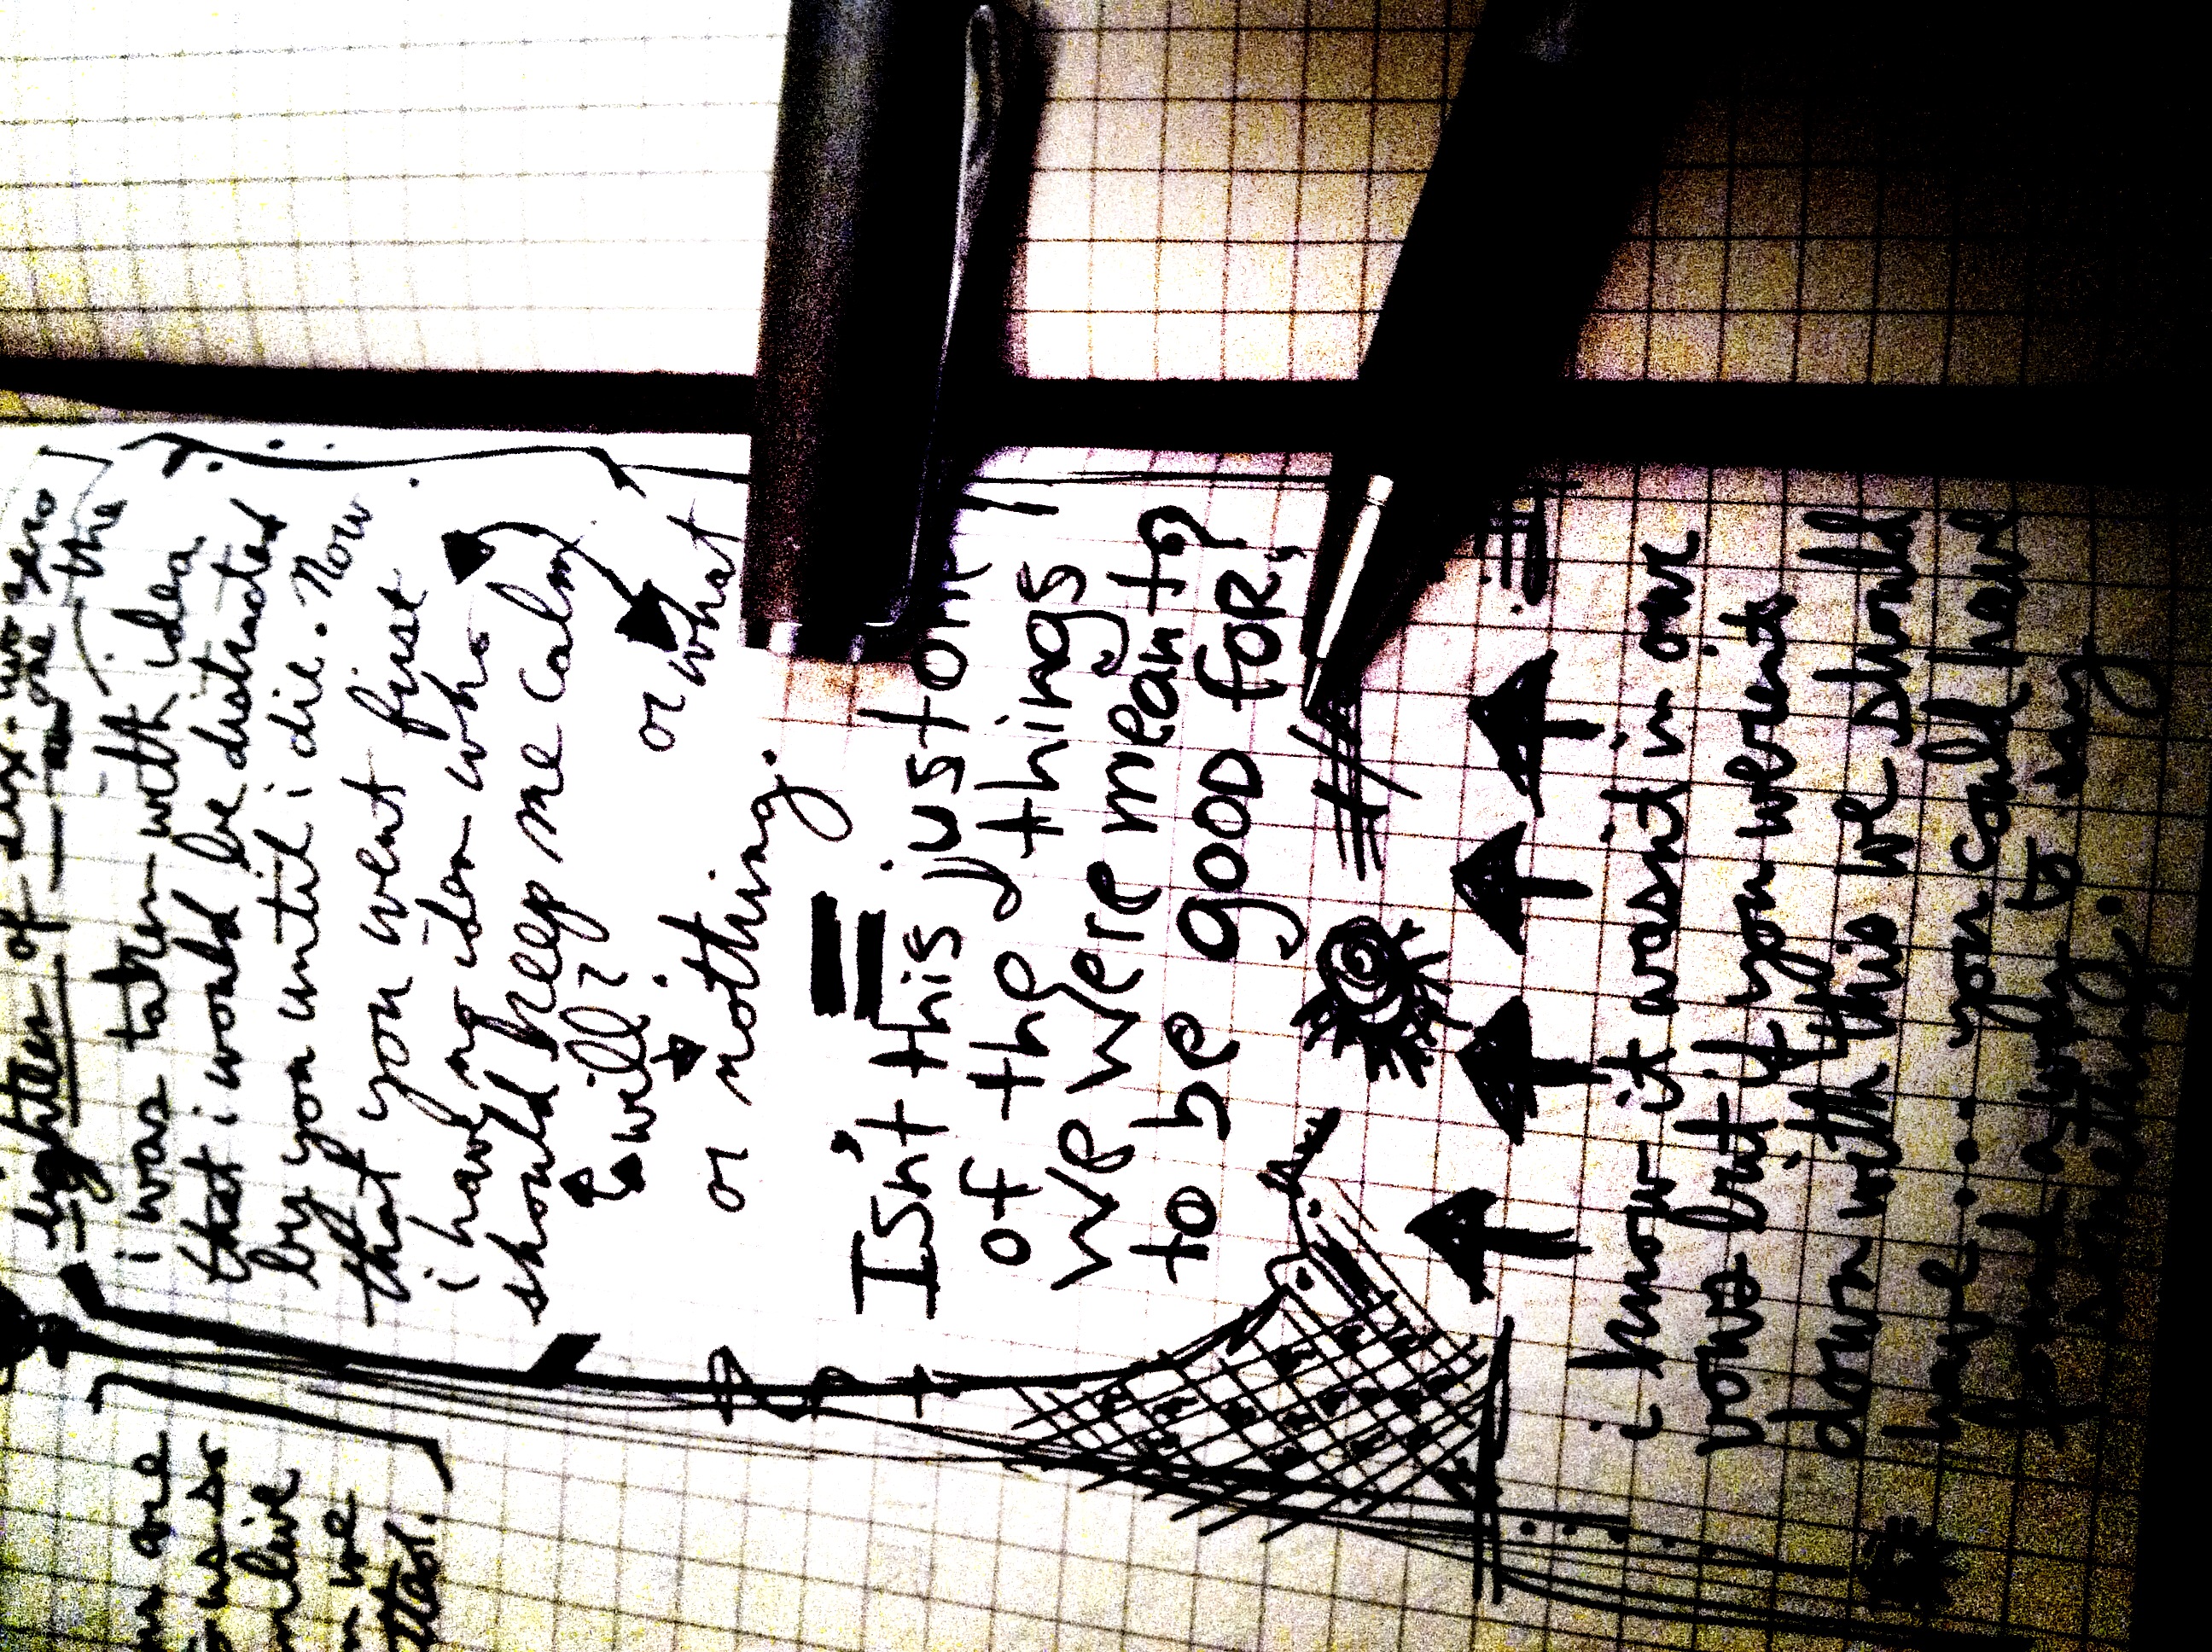 eighter of six. two zero
one the
i was taken with idea
that i would be distracted
by you until i die. Now
that you went first
i have no idea who
should help me calm
will?
or what
or nothing.
Isn't this just one
of the things
we were mean to?
to be good for,
i know it wasn't in our
vows but if you weren't
down with this we should
have.... you could have
found a way to say
something.
are
live
we